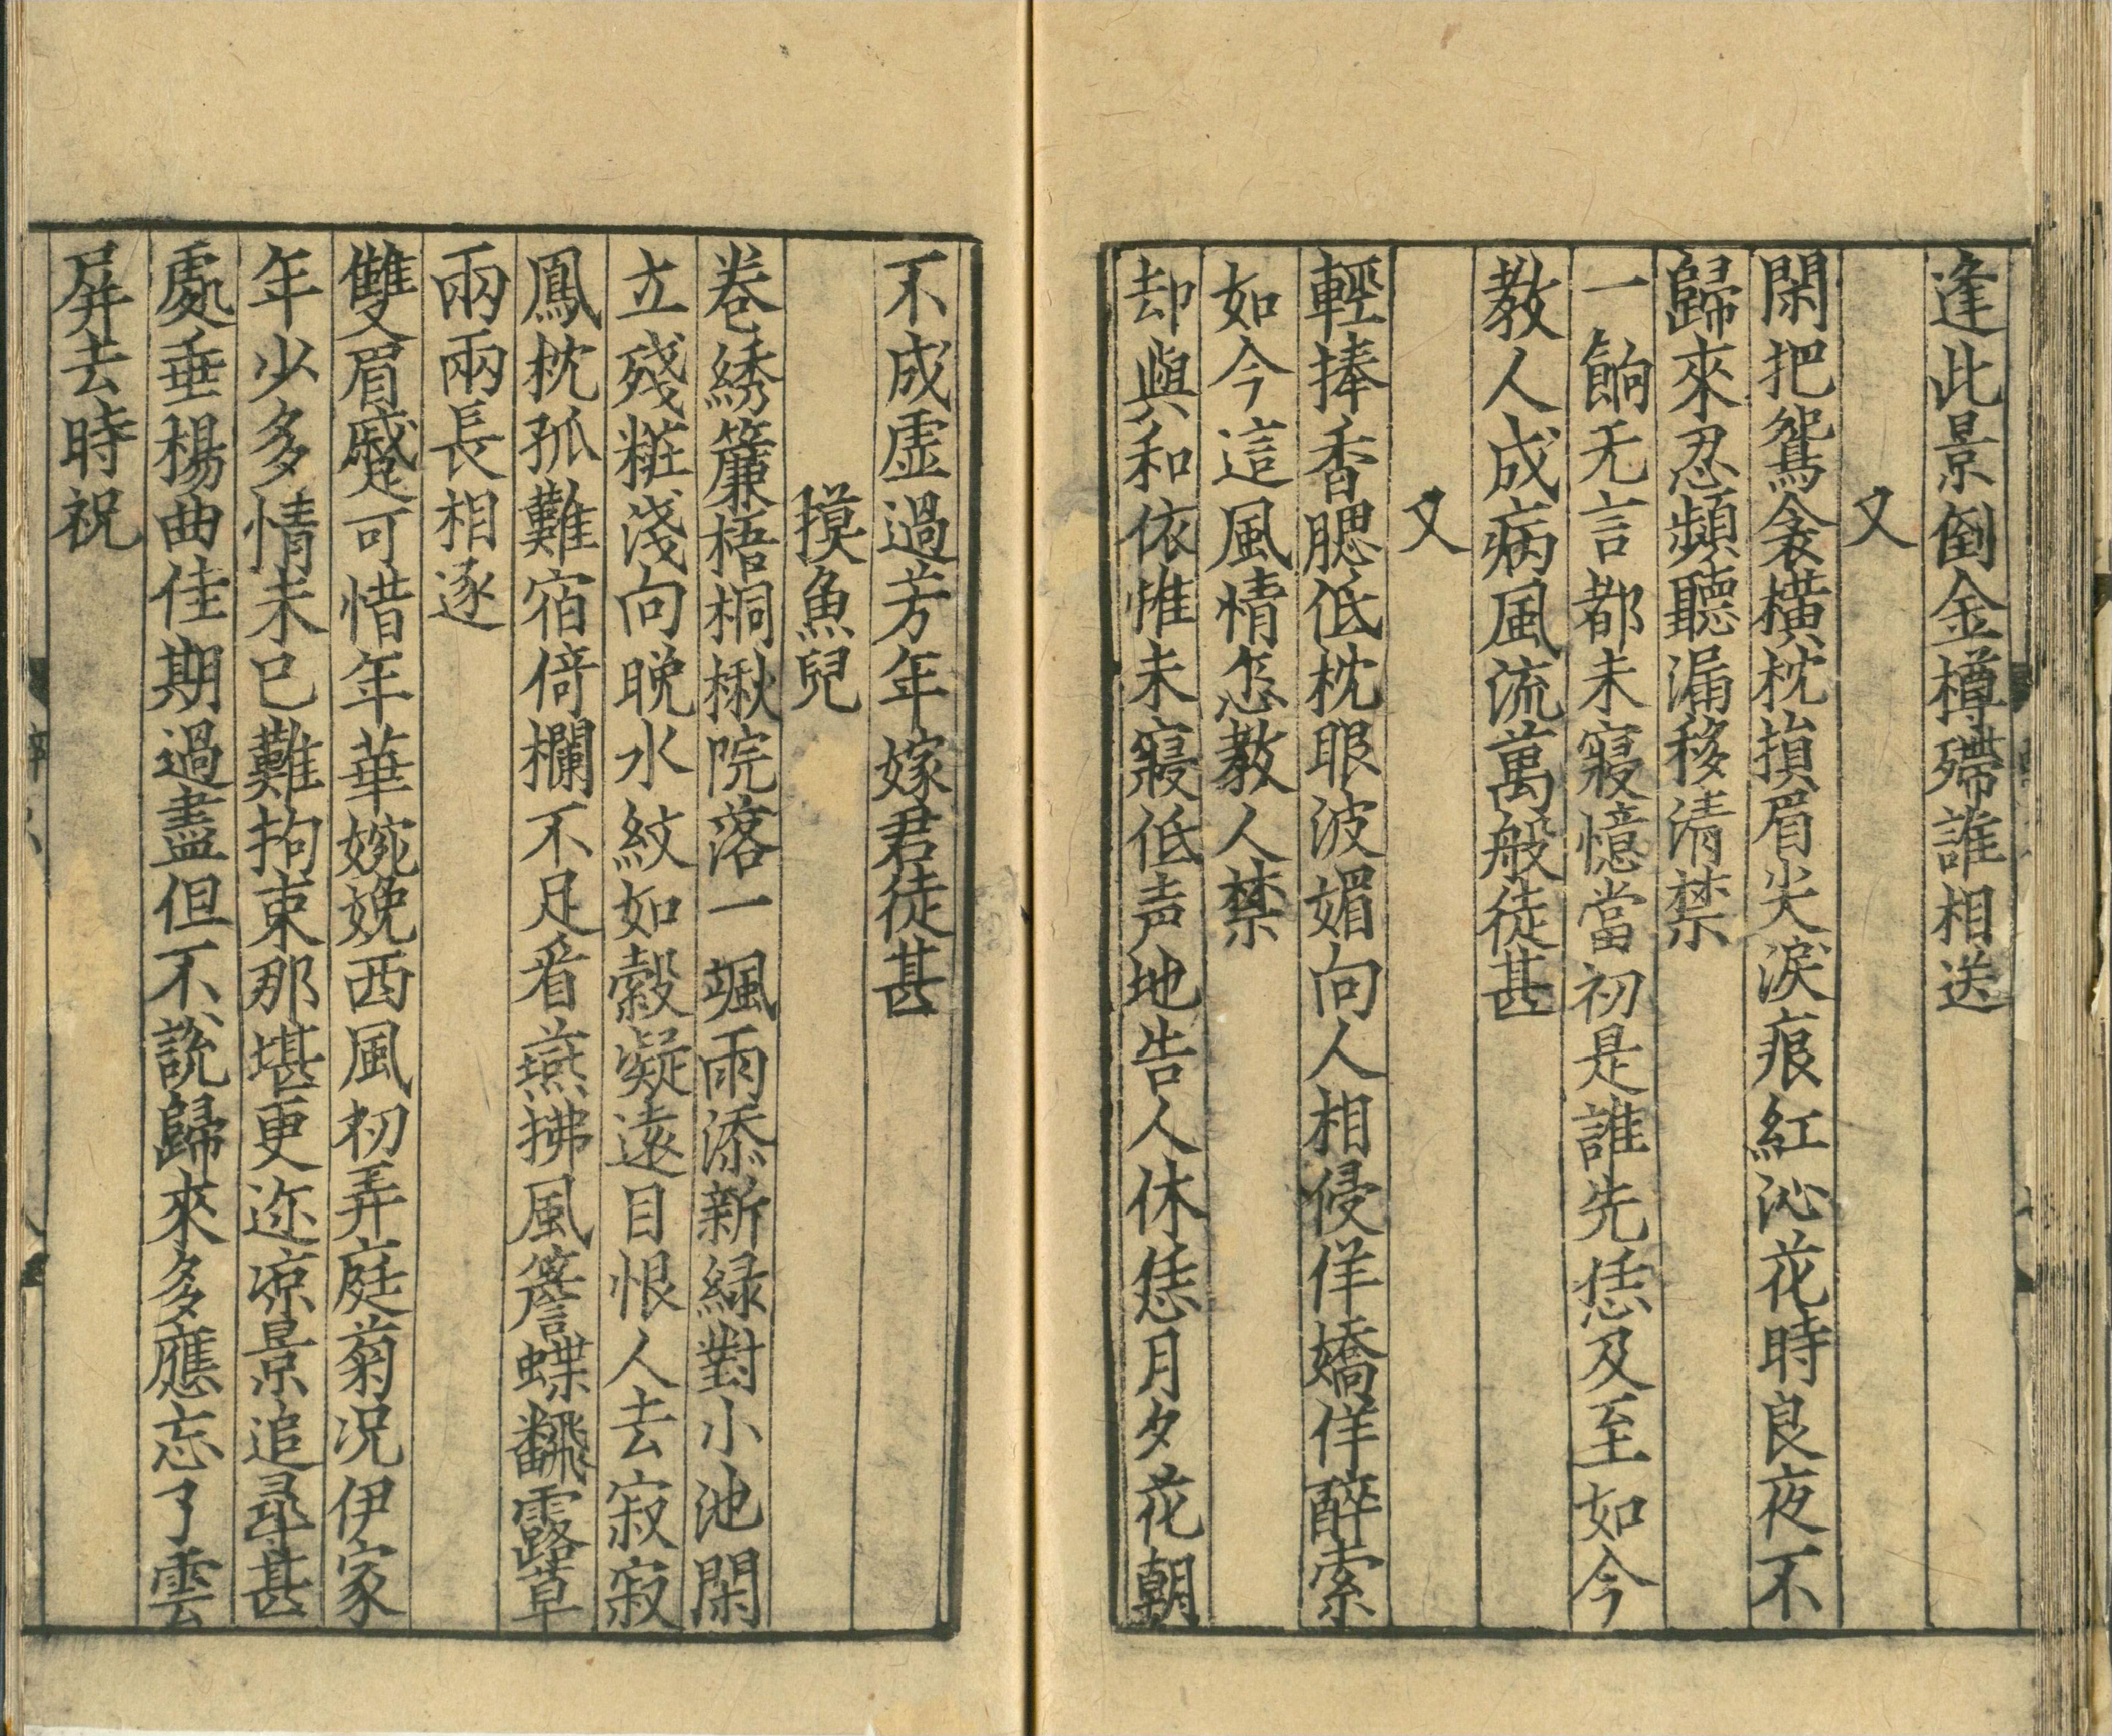 逢此景倒金樽殢誰相送
又
閑把鴛衾橫枕損眉尖淚痕紅沁花時良夜不
歸來忍頻聽漏移清禁
一餉无言都未寢憶當初是誰先恁及至如今
教人成病風流萬般徒甚
又
輕捧香腮低枕眼波媚向人相侵佯嬌佯醉索
如今這風情怎教人禁
却與和依惟未寢低声地告人休恁月夕花朝
不成虛過芳年嫁君徒甚
摸魚兒
卷綉簾梧桐楸院落一颯雨添新緑對小池閑
立殘粧淺向晚水紋如縠凝遠目恨人去寂寂
鳳枕孤難宿倚欄不足看燕拂風簷蝶翻露草
兩兩長相逐
雙眉蹙可惜年華婉娩西風初弄庭菊况伊家
年少多情未已難拘束那堪更迩凉景追尋甚
處垂楊曲佳期過盡但不說歸來多應忘了雲
屏去時祝